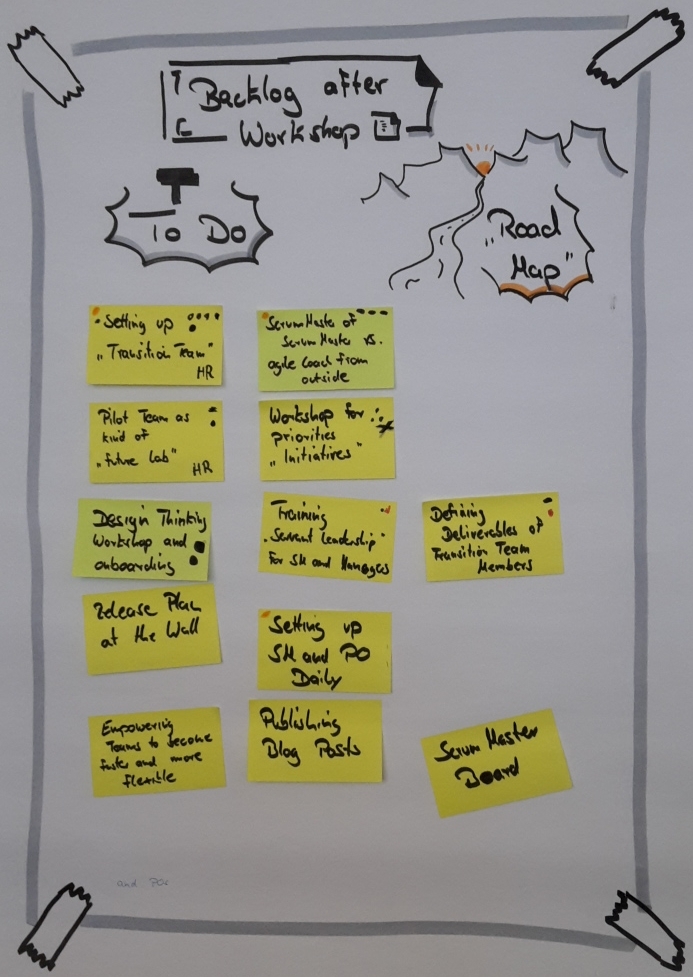 Backlog after
Workshop
To Do
"Road
Map"
Setting up
"Transition Team"
HR
Scrum Master of
Scrum Master vs.
agile Coach from
outside
Pilot Team as
kind of
"future Lab"
HR
Workshop for
priorities
"Initiatives"
Design Thinking
Workshop and
onboarding
Training
"Servant Leadership"
for SM and Managers
Defining
Deliverables of
Transition Team
Members
Release Plan
at the Wall
Setting up
SM and PO
Daily
Empowering
Teams to become
faster and more
flexible
Publishing
Blog Posts
Scrum Master
Board
and POs